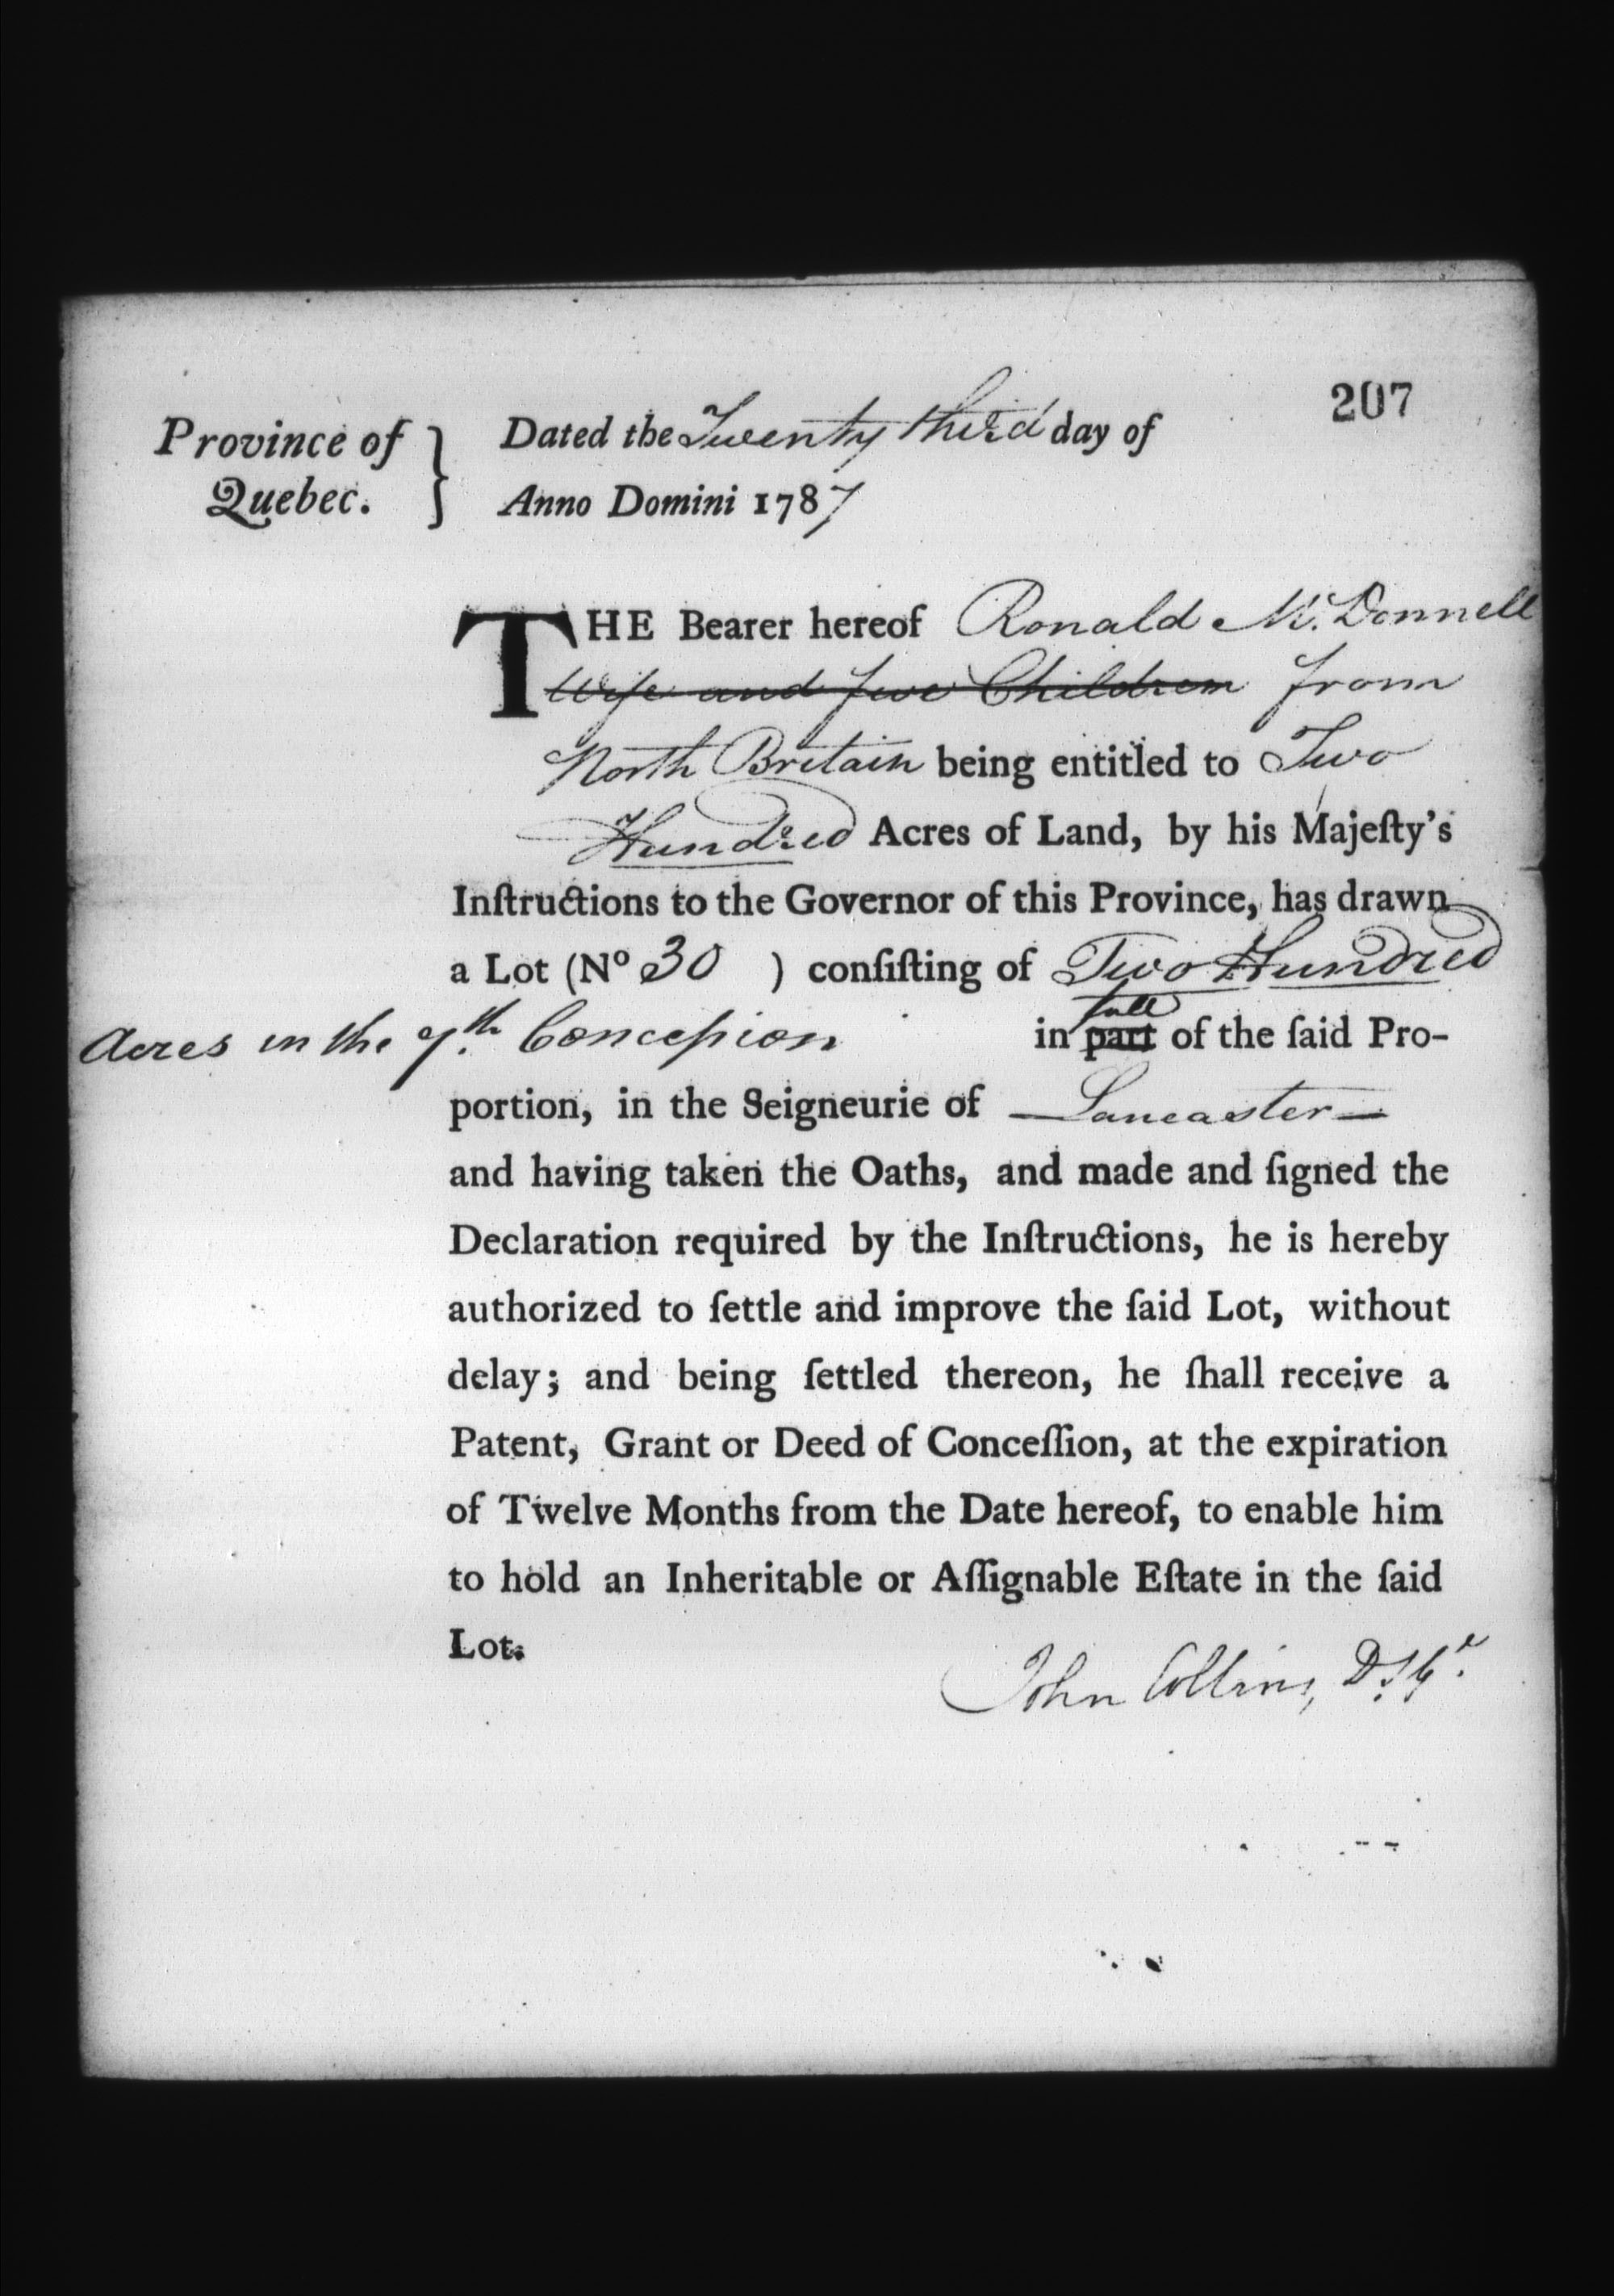 207
Province of } Dated the Twenty third day of
Quebec. } Anno Domini 1787
THE Bearer hereof Ronald Mc. Donnell
Wife and five Children from
North Britain being entitled to Two
Hundred Acres of Land, by his Majeſty's
Inſtructions to the Governor of this Province, has drawn
a Lot (No 30 ) conſiſting of Two Hundred
full
Acres in the 7th. Conceſsion in part of the ſaid Pro-
portion, in the Seigneurie of Lancaster
and having taken the Oaths, and made and ſigned the
Declaration required by the Inſtructions, he is hereby
authorized to ſettle and improve the ſaid Lot, without
delay; and being ſettled thereon, he ſhall receive a
Patent, Grant or Deed of Conceſſion, at the expiration
of Twelve Months from the Date hereof, to enable him
to hold an Inheritable or Aſſignable Eſtate in the ſaid
Lot.
John Collins,